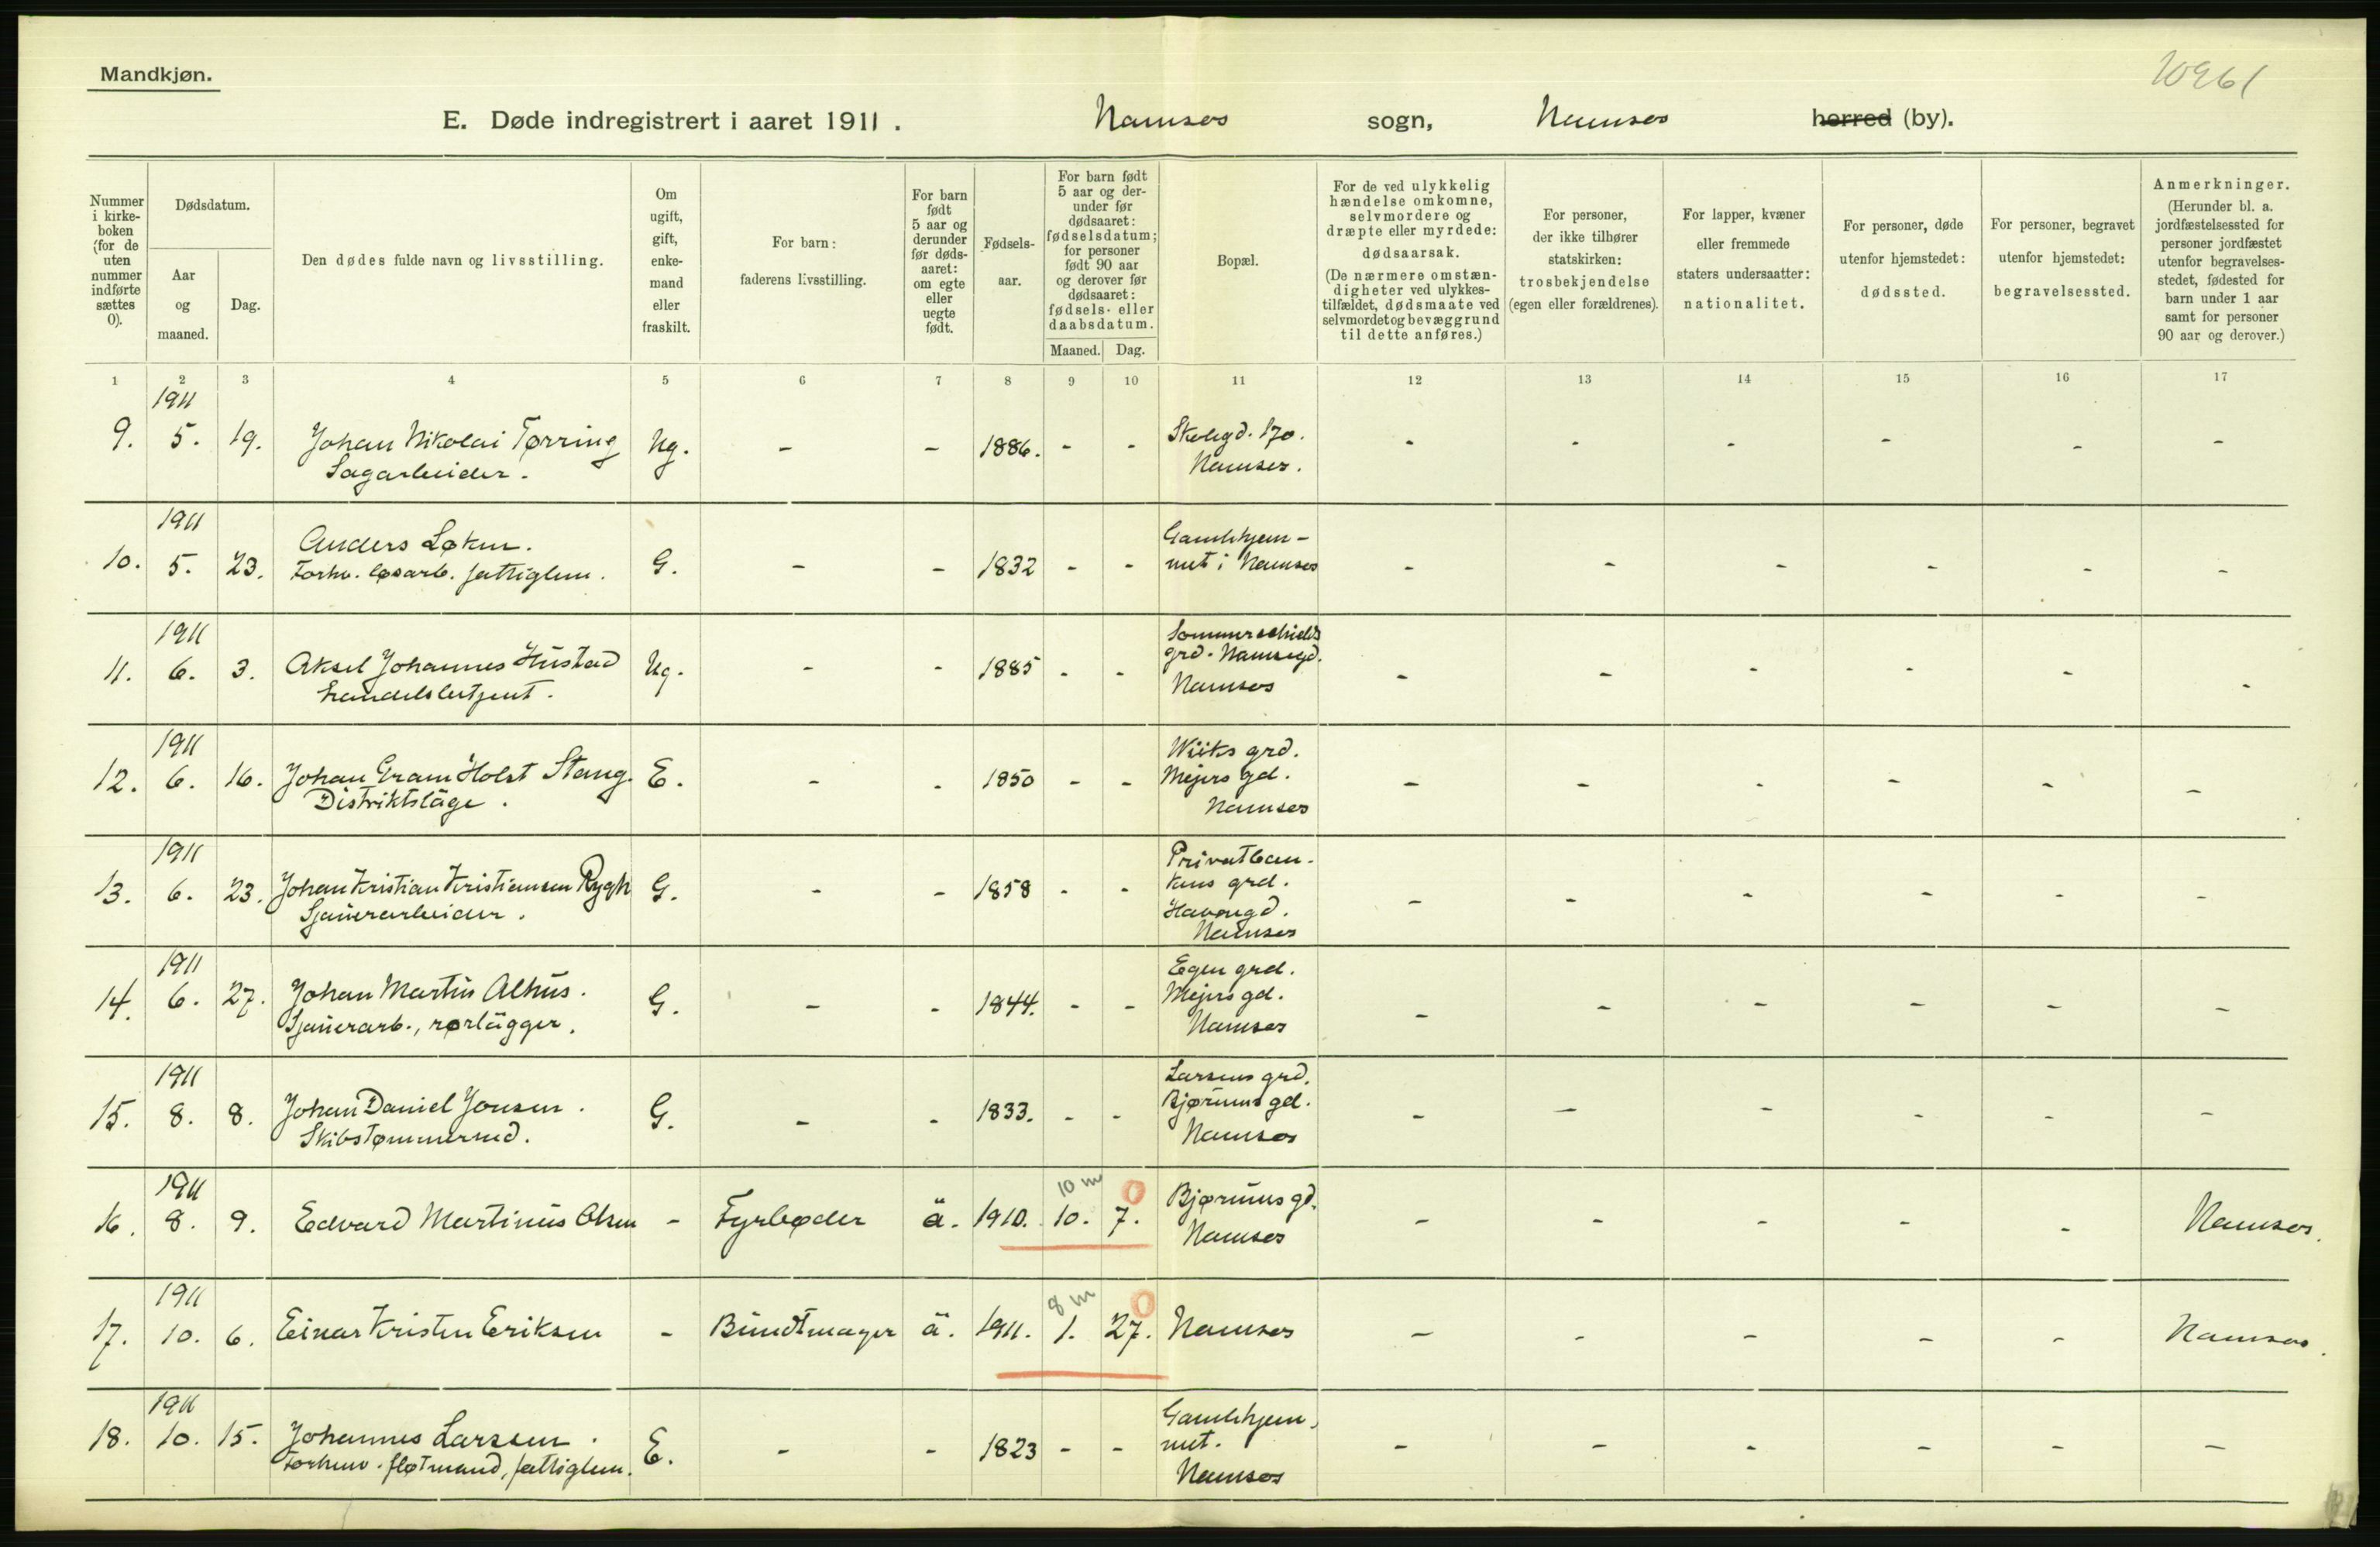 Mandkjøn.
10961
E. Døde indregistrert i aaret 1911. Namsos sogn, Namsos herred (by).
Nummer i kirke-boken (for de uten nummer indførte sættes 0).
Dødsdatum.
Aar og maaned.
Dag.
Den dødes fulde navn og livsstilling.
Om ugift, gift, enke-mand eller fraskilt.
For barn: faderens livsstilling.
For barn født 5 aar og derunder før døds-aaret: om egte eller uegte født.
Fødsels-aar.
For barn født 5 aar og der-under før dødsaaret: fødselsdatum; for personer født 90 aar og derover før dødsaaret: fødsels- eller daabsdatum.
Maaned. Dag.
Bopæl.
For de ved ulykkelig hændelse omkomne, selvmordere og dræpte eller myrdede: dødsaarsak. (De nærmere omstæn-digheter ved ulykkes-tilfældet, dødsmaate ved selvmordet og bevæggrund til dette anføres.)
For personer, der ikke tilhører statskirken: trosbekjendelse (egen eller forældrenes).
For lapper, kvæner eller fremmede staters undersaatter: nationalitet.
For personer, døde utenfor hjemstedet: dødssted.
For personer, begravet utenfor hjemstedet: begravelsessted.
Anmerkninger. (Herunder bl. a. jordfæstelsessted for personer jordfæstet utenfor begravelses-stedet, fødested for barn under 1 aar samt for personer 90 aar og derover.)
1 2 3 4 5 6 7 8 9 10 11 12 13 14 15 16 17
1911
9. 5. 19. Johan Nikolai Tørring Ug. - - 1886. - - Skolegd. 170. - - - - - -
Sagarbeider. Namsos.
1911
10. 5. 23. Anders Løken. G. - - 1832 - - Gamlehjem- - - - - - -
Forhv. løsarb. fattiglem. met i Namsos
1911
11. 6. 3. Aksel Johannes Hustad Ug. - - 1885 - - Sommerschields - - - - - -
handelsbetjent. grd. Namsegd.
Namsos
1911
12. 6. 16. Johan Gram Holst Stang. E. - - 1850 - - Wiiks grd. - - - - - -
Distriktslæge. Mejers gd.
Namsos
1911
13. 6. 23. Johan Kristian Kristiansen Rygh G. - - 1858 - - Privatban- - - - - - -
Sjauerarbeider. kens grd.
Havnegd.
Namsos
1911
14. 6. 27. Johan Martin Alhus. G. - - 1844. - - Egen grd. - - - - - -
Sjauerarb., rørlägger. Mejers gd.
Namsos
1911
15. 8. 8. Johan Daniel Jonsen. G. - - 1833. - - Larsens grd. - - - - - -
Skibstømmermd. Bjørums gd.
Namsos
1911 10 m 0
16. 8. 9. Edvard Martinus Olsen - Fyrbøder ä. 1910. 10. 7. Bjørums gd. - - - - - Namsos.
Namsos
1911 8 m 0
17. 10. 6. Einar Kristen Eriksen - Bundtmager ä. 1911. 1. 27. Namsos - - - - - Namsos.
1911
18. 10. 15. Johannes Larssen. E. - - 1823 - - Gamlehjem- - - - - - -
Forhenv. fløtmand, fattiglem. met.
Namsos